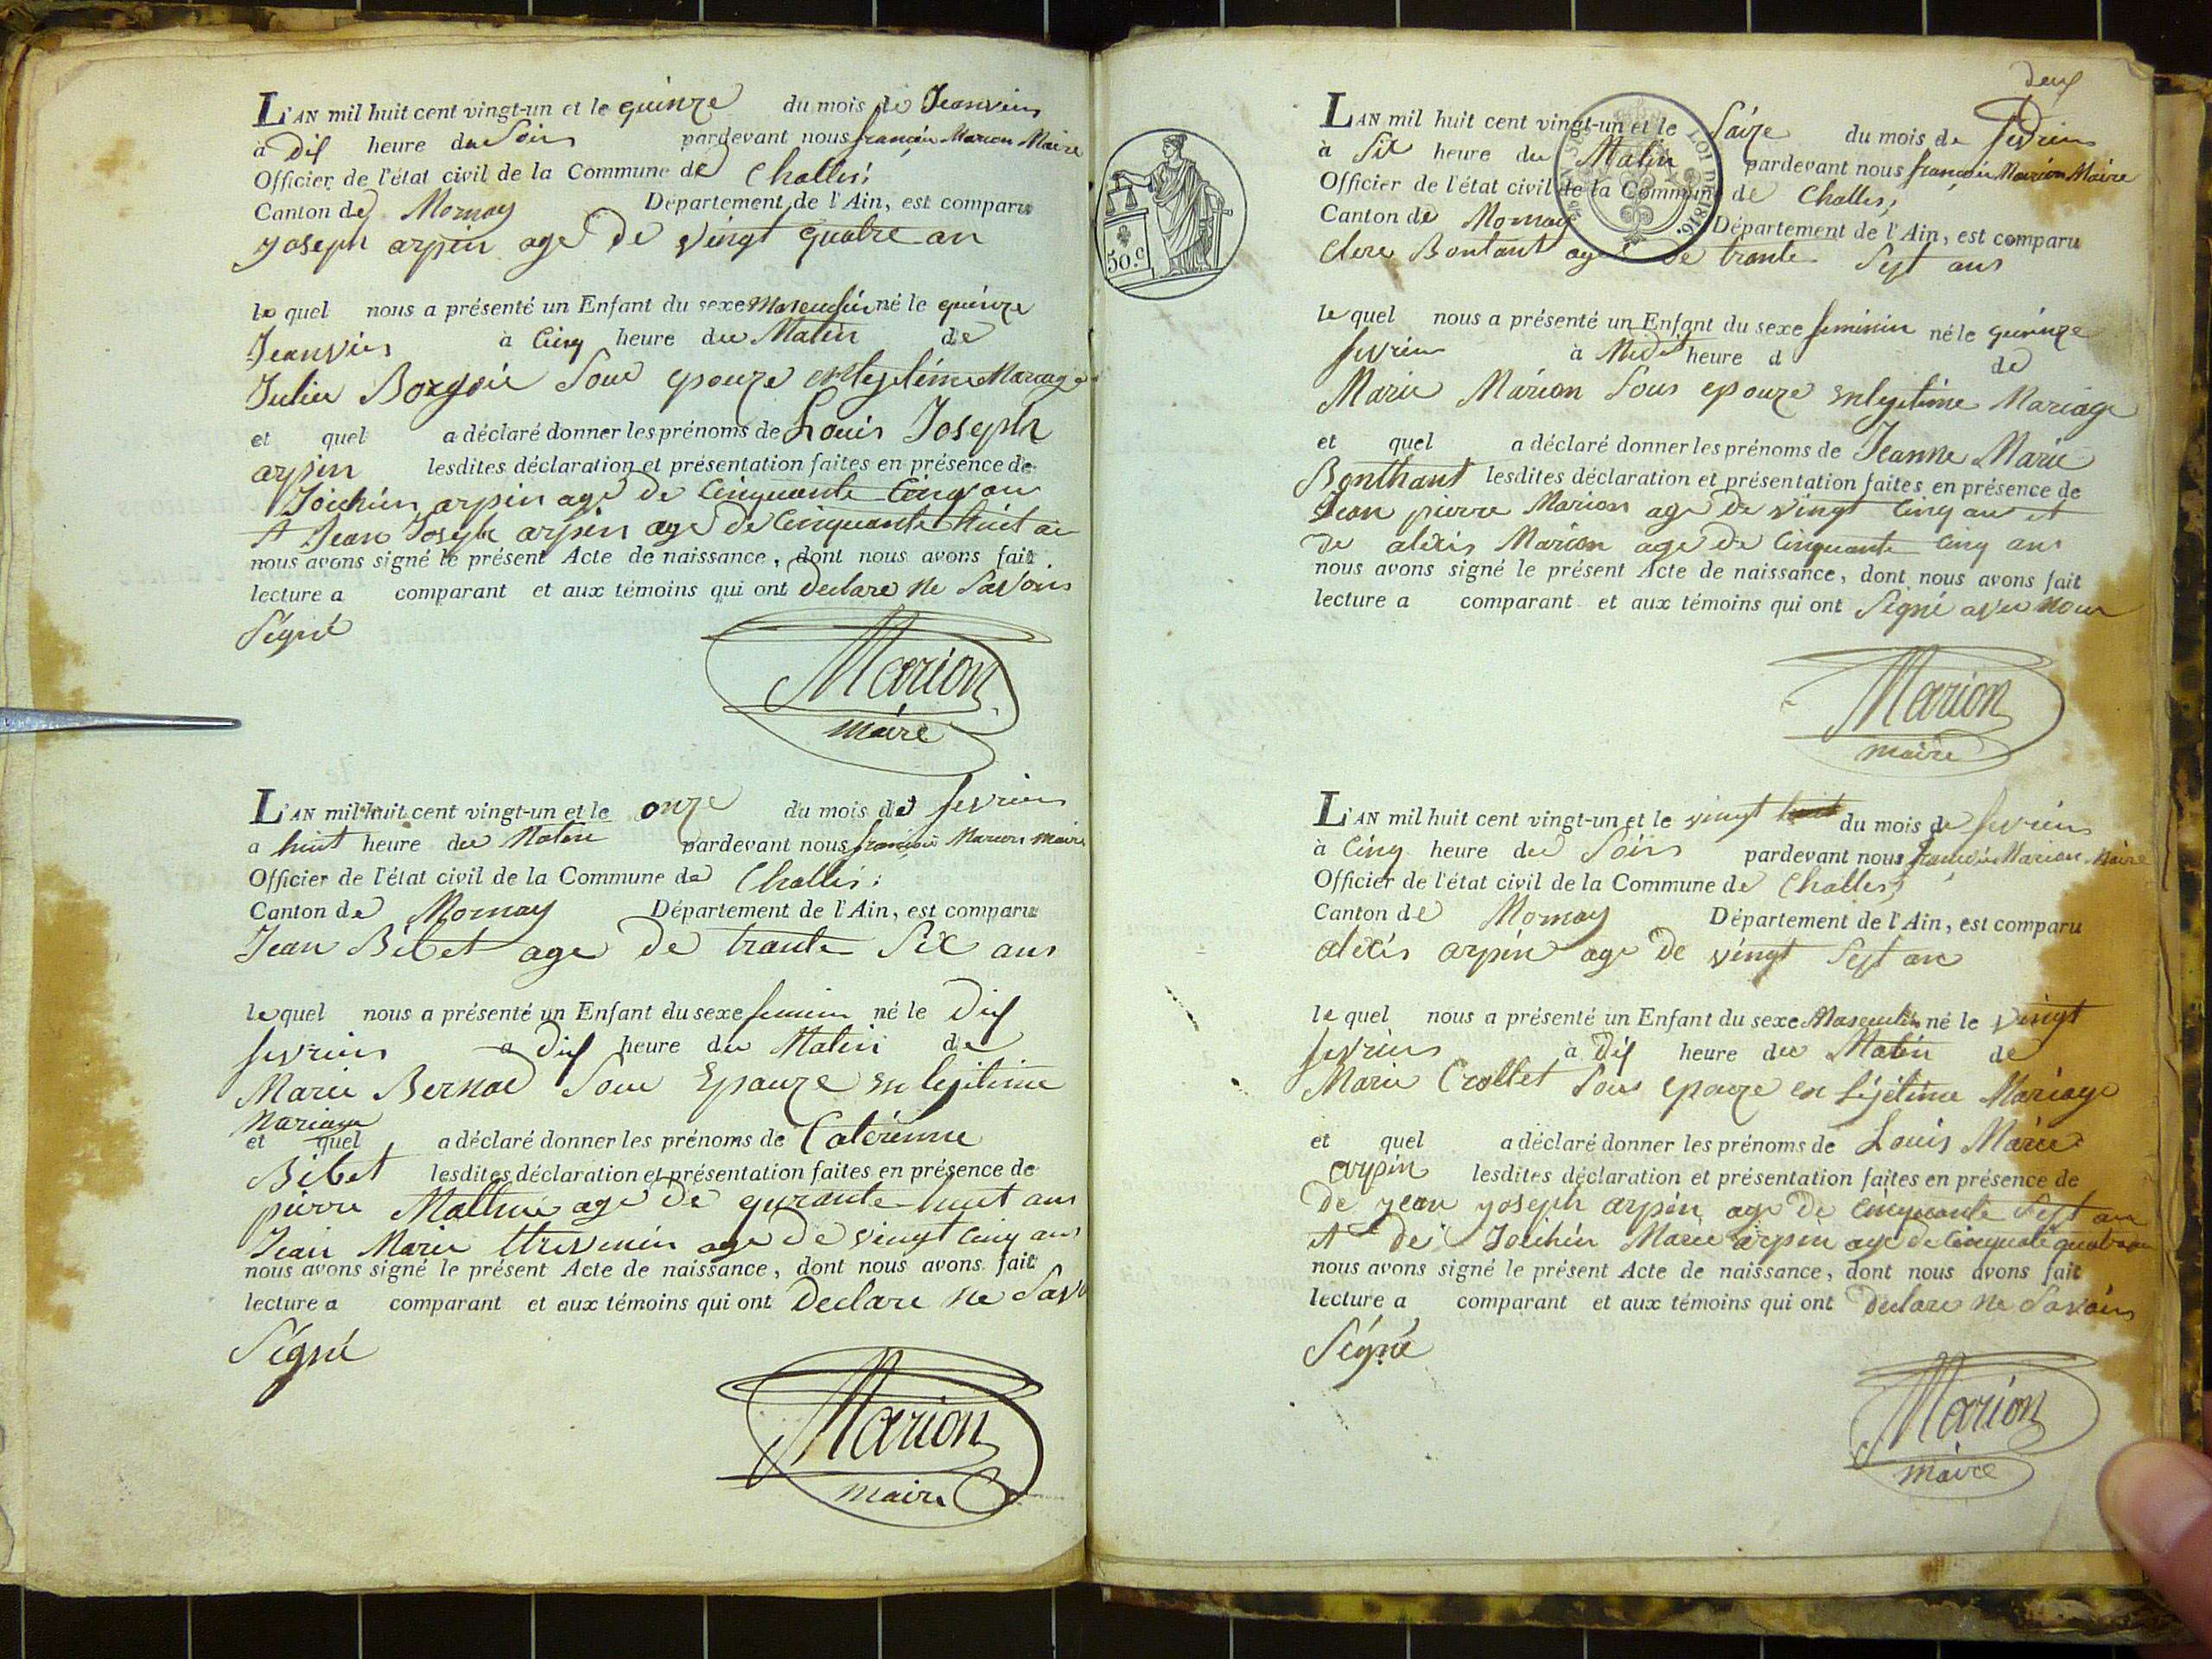 L'AN mil huit cent vingt-un et le quinze du mois de Jeanvier
à dix heure du Soir pardevant nous françois Marion Maire
Officier de l'état civil de la Commune de Challes;
Canton de Mornay Département de l'Ain, est comparu
yoseph arpin age de vingt quatre an
le quel nous a présenté un Enfant du sexe Masculin né le quinze
Jeanvier à Cinq heure du Matin de
Julie Sous epouze en legitime Mariage
et quel a déclaré donner les prénoms de Louis Joseph
arpin lesdites déclaration et présentation faites en présence de
Joichin arpin age de Cinquante Cinq an
et Jean Joseph arpin age de Cinquante huit an
nous avons signé le présent Acte de naissance, dont nous avons fait
lecture a comparant et aux témoins qui ont declare ne Savoir
Signé
Marion
maire
L'AN mil huit cent vingt-un et le onze du mois de fevrier
a huit heure du Matin pardevant nous françois Marion maire
Officier de l'état civil de la Commune de Challes;
Canton de Mornay Département de l'Ain, est comparu
Jean Bibet age de trante Six ans
le quel nous a présenté un Enfant du sexe feminin né le dix
fevrier a dix heure du Matin de
Marie Sous Epouze en legitime
Mariage
et quel a déclaré donner les prénoms de Caterinne
Bibet lesdites déclaration et présentation faites en présence de
pierre age de qurante huit ans
Jean Marie age de vingt Cinq ans
nous avons signé le présent Acte de naissance, dont nous avons fait
lecture a comparant et aux témoins qui ont Declare ne Savo
Signé
Marion
maire
deux
50.c
LOI DE 1816.
L'AN mil huit cent vingt-un et le Saize du mois de fevrier
à Six heure du Matin pardevant nous françois Marion Maire
Officier de l'état civil de la Commune de Challes;
Canton de Mornay Département de l'Ain, est comparu
Bontant age de trante Sept ans
le quel nous a présenté un Enfant du sexe feminin né le quinze
fevrier à Midi heure d de
Marie Marion Sous epouze en legitime Mariage
et quel a déclaré donner les prénoms de Jeanne Marie
Bonthant lesdites déclaration et présentation faites en présence de
Jean pierre Marion age de vingt Cinq ans et
de alexis Marion age de Cinquante Cinq ans
nous avons signé le présent Acte de naissance, dont nous avons fait
lecture a comparant et aux témoins qui ont Signé avec nous
Marion
maire
L'AN mil huit cent vingt-un et le vingt huit du mois de fevrier
à Cinq heure du Soir pardevant nous françois Marion Maire
Officier de l'état civil de la Commune de Challes;
Canton de Mornay Département de l'Ain, est comparu
alexis arpin age de vingt Sept an
le quel nous a présenté un Enfant du sexe Masculin né le vingt
fevrier à dix heure du Matin de
Marie Crollet Sous epouze en legitime Mariage
et quel a déclaré donner les prénoms de Louis Marie
arpin lesdites déclaration et présentation faites en présence de
de yean yoseph arpin age de Cinquante Sept an
et de Joichin Marie arpin age de
nous avons signé le présent Acte de naissance, dont nous avons fait
lecture a comparant et aux témoins qui ont declare ne Savoir
Signé
Marion
maire